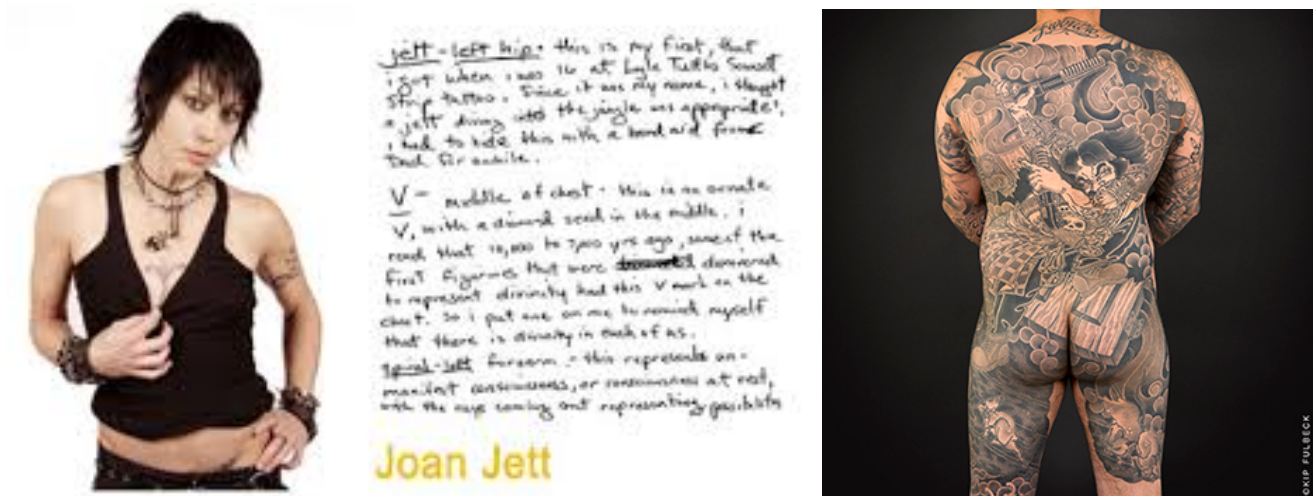 jett - left hip. this is my first, that
i got when i was 16 at Lyle Tuttle Sunset
Strip tattoo. Since it was my name, i thought
a jett diving into the jungle was appropriate!
i had to hide this with a band aid from
Dad for awhile.
V - middle of chest - this is an ornate
V, with a diamond seed in the middle. i
read that 10,000 to 7,000 yrs ago, some of the
first figurines that were discovered
to represent divinity had this V mark on the
chest. So i put one on me to remind myself
that there is divinity in each of us.
spiral - left forearm - this represents un-
manifest consciousness, or consciousness at rest,
with the rays coming out representing possibility
Joan Jett
©KIP FULBECK